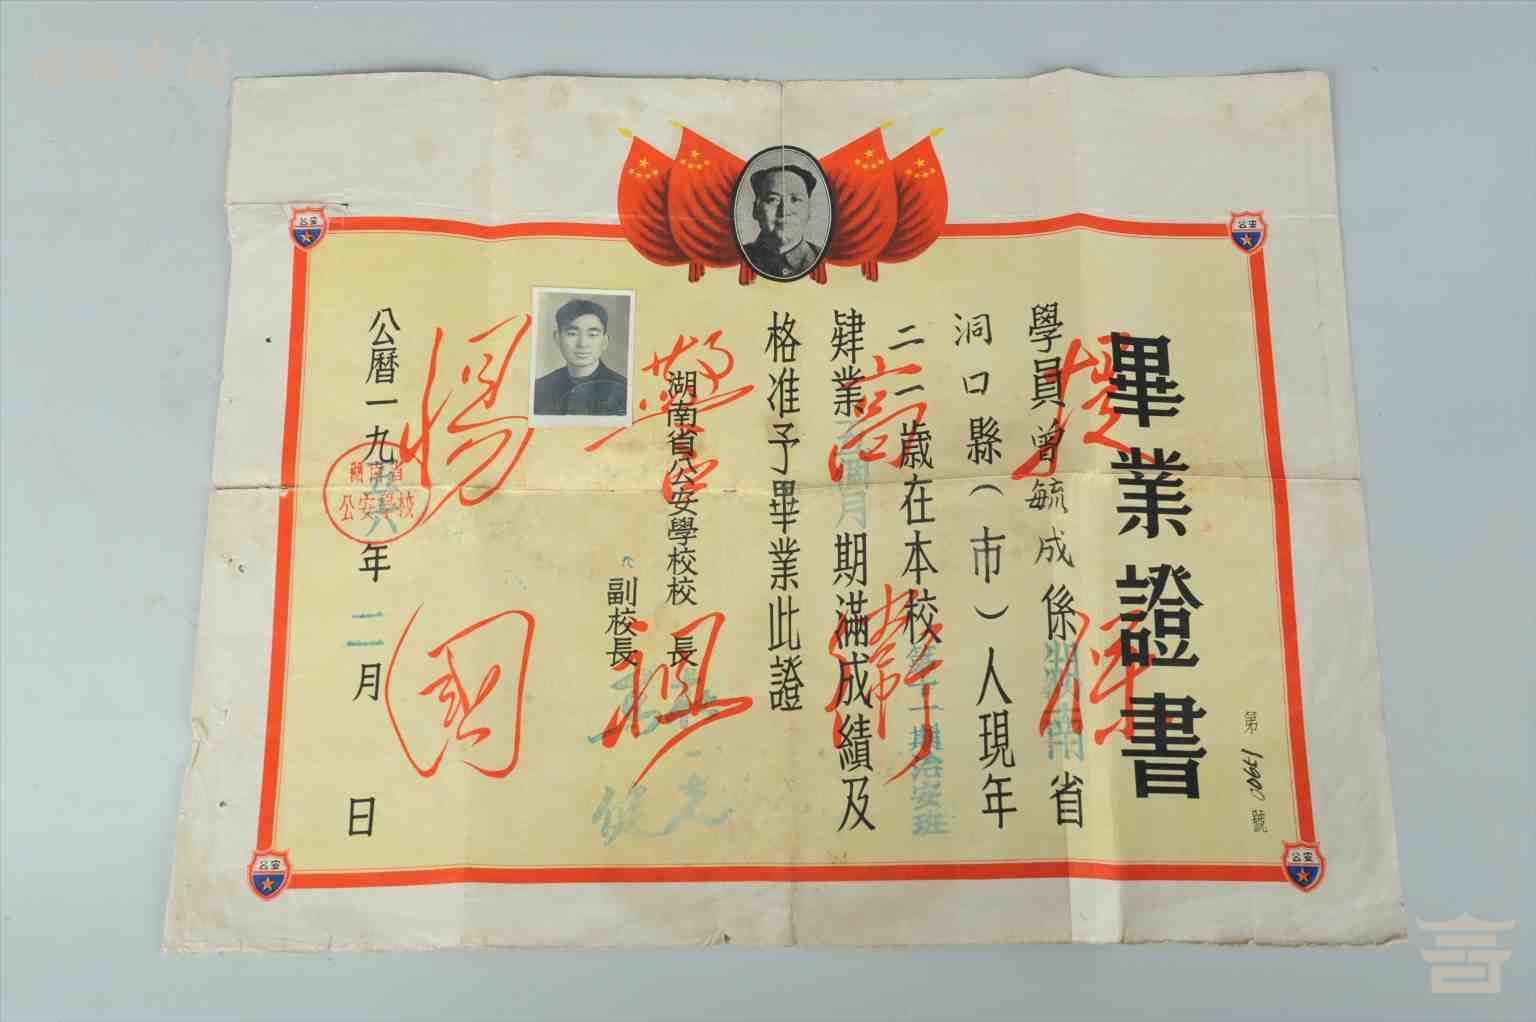 畢業證書
第00651號
學員曾毓成係湖南省
洞口縣(市)人現年
二一歲在本校第十一期治安班
肄業五個月期滿成績及
格准予畢業此證
湖南省公安學校校長
副校長
公曆一九五六年二月 日
湖南省
公安學校
提高警惕
保衛祖國
公安
公安
公安
公安